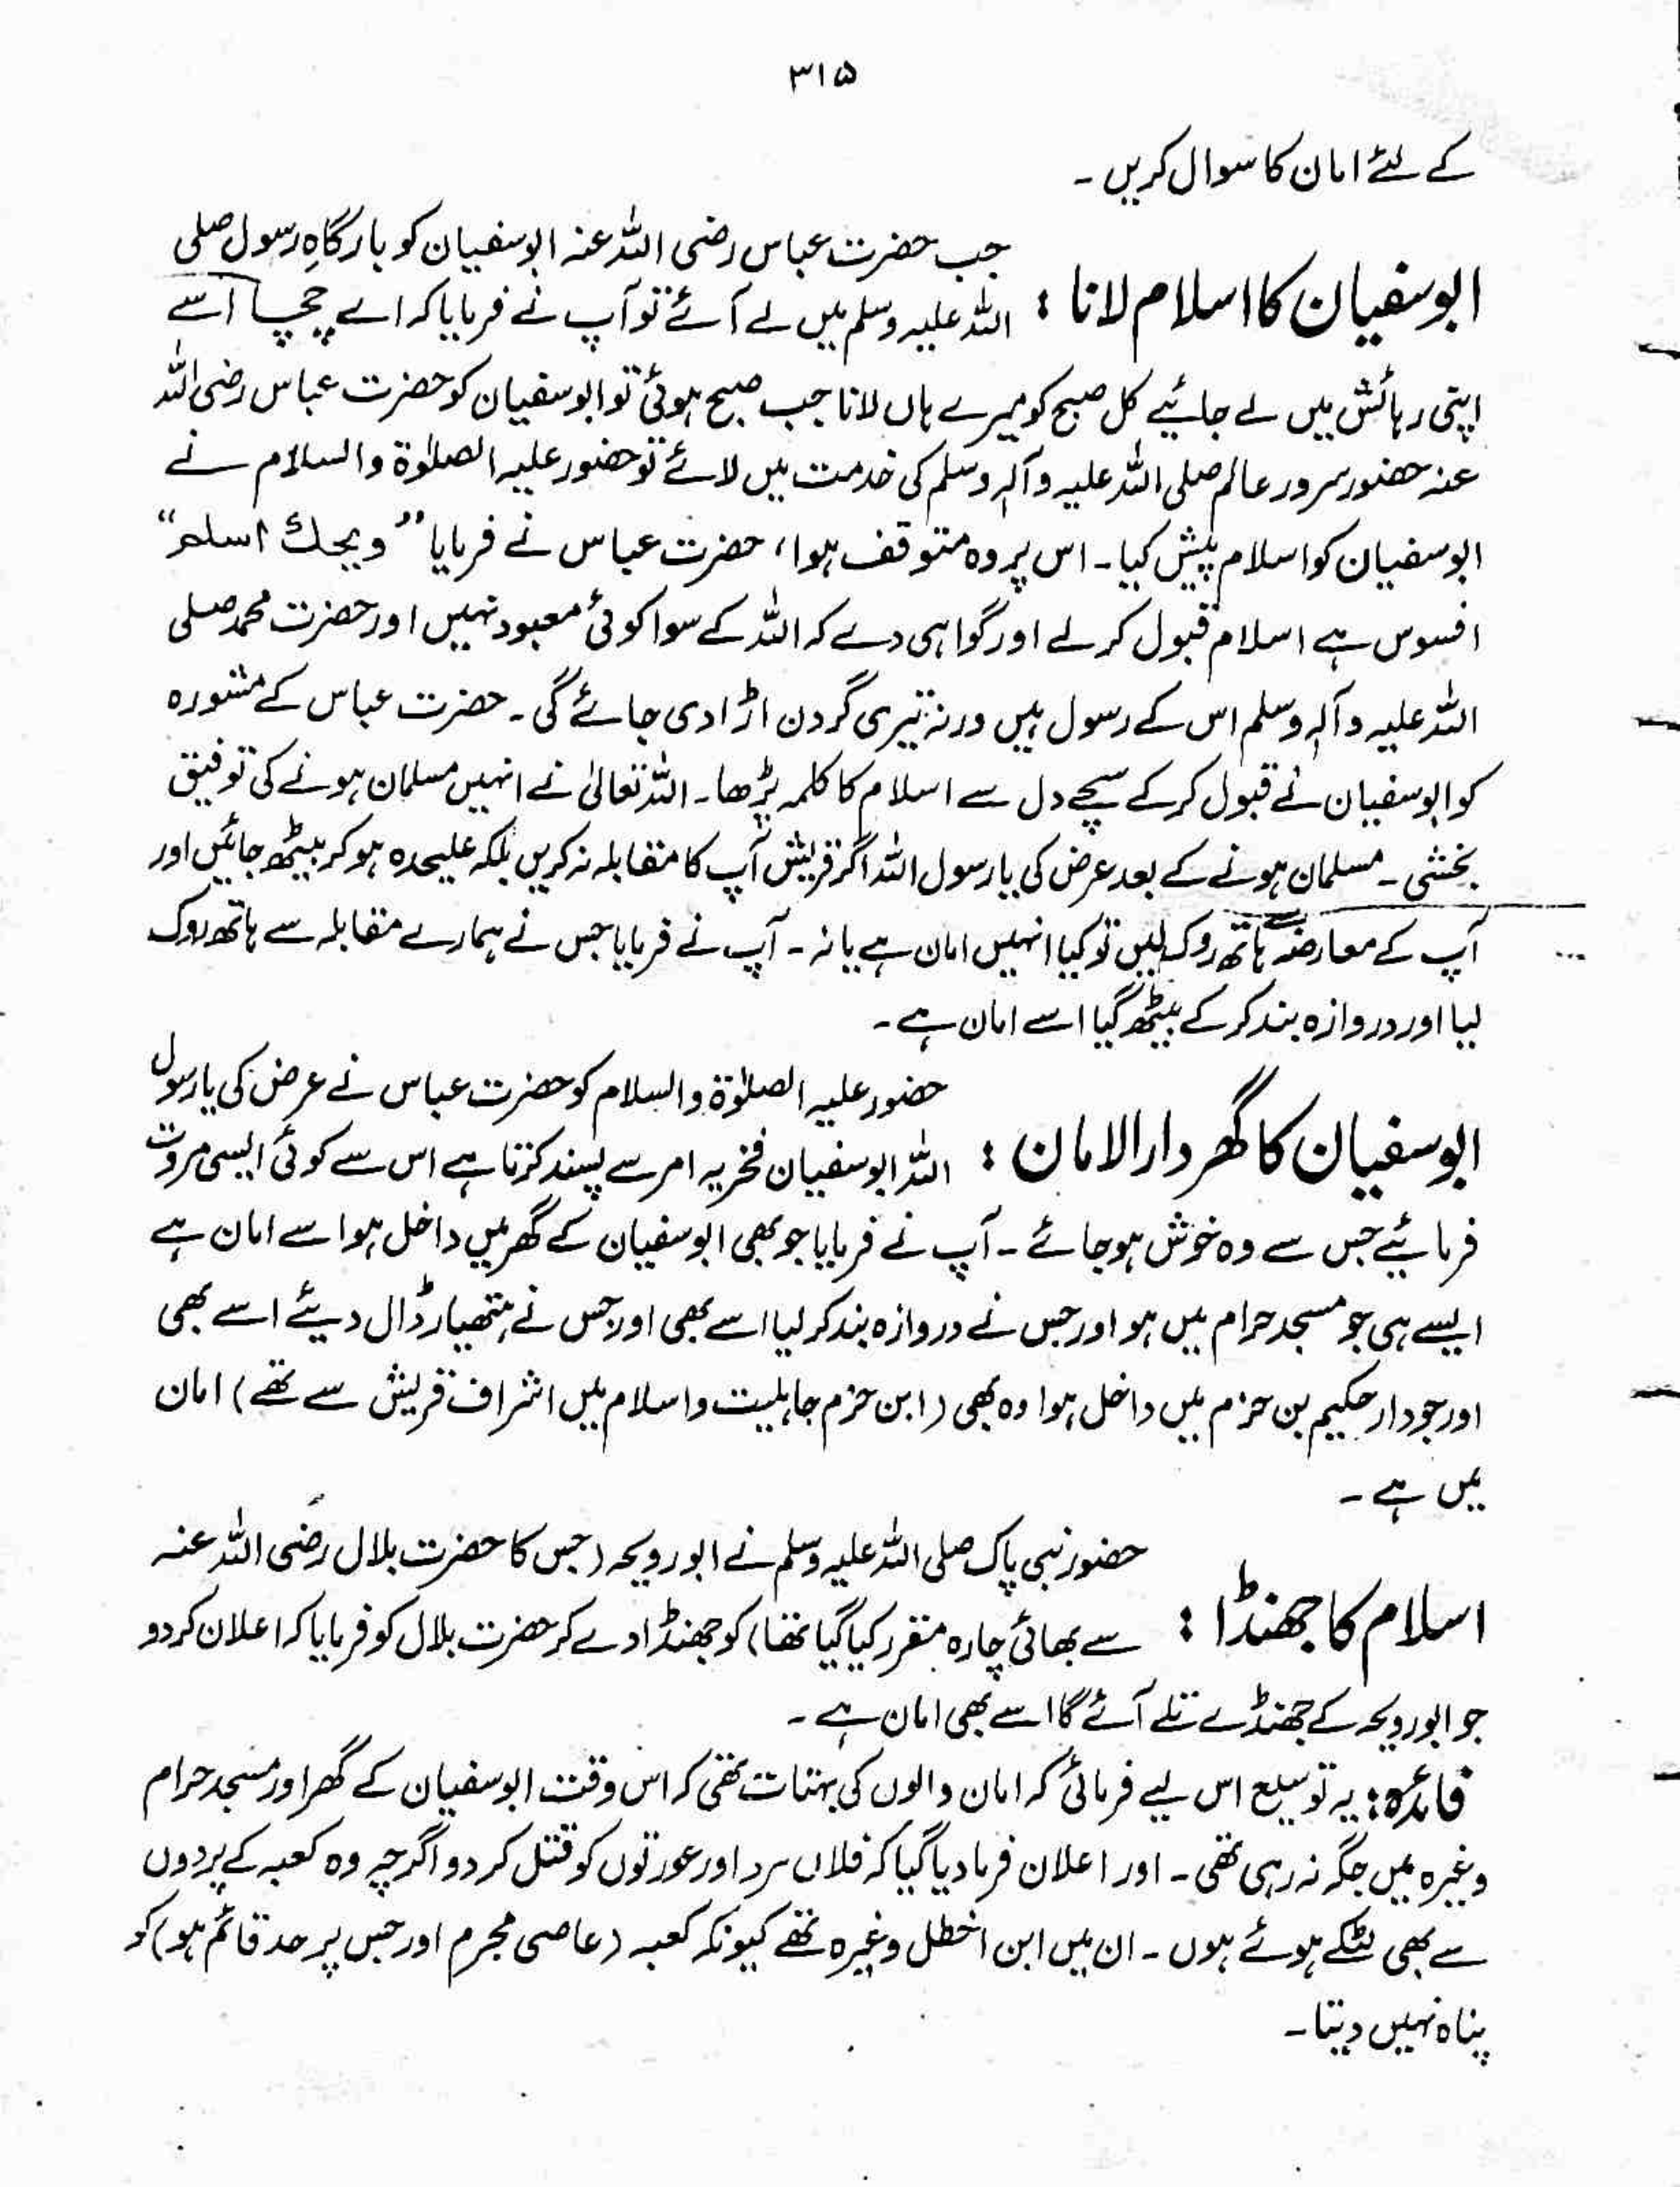 ۳۱۵
کے لئے امان کا سوال کریں ۔
ابوسفیان کا اسلام لانا : جب حضرت عباس رضی اللہ عنہ ابوسفیان کو بارگاہِ رسول صلی
اللہ علیہ وسلم میں لے آئے تو آپ نے فرمایا کہ اے چچا اسے
اپنی رہائش میں لے جائیے کل صبح کو میرے ہاں لانا جب صبح ہوئی تو ابوسفیان کو حضرت عباس رضی اللہ
عنہ حضور سرور عالم صلی اللہ علیہ وآلہٖ وسلم کی خدمت میں لائے تو حضور علیہ الصلوٰۃ والسلام نے
ابوسفیان کو اسلام پیش کیا ۔ اس پر وہ متوقف ہوا، حضرت عباس نے فرمایا ”ویحك اسلم“
افسوس ہے اسلام قبول کر لے اور گواہی دے کہ اللہ کے سوا کوئی معبود نہیں اور حضرت محمد صلی
اللہ علیہ وآلہٖ وسلم اس کے رسول ہیں ورنہ تیری گردن اڑا دی جائے گی ۔ حضرت عباس کے مشورہ
کو ابوسفیان نے قبول کر کے سچے دل سے اسلام کا کلمہ پڑھا ۔ اللہ تعالیٰ نے انہیں مسلمان ہونے کی توفیق
بخشی ۔ مسلمان ہونے کے بعد عرض کی یا رسول اللہ اگر قریش آپ کا مقابلہ نہ کریں بلکہ علیحدہ ہو کر بیٹھ جائیں اور
آپ کے معارضہ سے ہاتھ روک لیں تو کیا انہیں امان ہے یا نہ ۔ آپ نے فرمایا جس نے ہمارے مقابلہ سے ہاتھ روک
لیا اور دروازہ بند کر کے بیٹھ گیا اسے امان ہے ۔
ابوسفیان کا گھر دارالامان : حضور علیہ الصلوٰۃ والسلام کو حضرت عباس نے عرض کی یا رسول
اللہ ابوسفیان فخریہ امر سے پسند کرتا ہے اس سے کوئی ایسی مروت
فرمائیے جس سے وہ خوش ہو جائے ۔ آپ نے فرمایا جو بھی ابوسفیان کے گھر میں داخل ہوا سے امان ہے
ایسے ہی جو مسجد حرام میں ہو اور جس نے دروازہ بند کر لیا اسے بھی اور جس نے ہتھیار ڈال دیئے اسے بھی
اور جو دار حکیم بن حزم میں داخل ہوا وہ بھی (ابن حزم جاہلیت و اسلام میں اشراف قریش سے تھے) امان
میں ہے ۔
اسلام کا جھنڈا : حضور نبی پاک صلی اللہ علیہ وسلم نے ابو رویحہ (جس کا حضرت بلال رضی اللہ عنہ
سے بھائی چارہ مقرر کیا گیا تھا) کو جھنڈا دے کر حضرت بلال کو فرمایا کہ اعلان کر دو
جو ابو رویحہ کے جھنڈے تلے آئے گا اسے بھی امان ہے ۔
فائدہ : یہ توسیع اس لیے فرمائی کہ امان والوں کی بہتات تھی کہ اس وقت ابوسفیان کے گھر اور مسجد حرام
وغیرہ میں جگہ نہ رہی تھی ۔ اور اعلان فرما دیا گیا کہ فلاں مرد اور عورتوں کو قتل کر دو اگرچہ وہ کعبہ کے پردوں
سے بھی لٹکے ہوئے ہوں ۔ ان میں ابن اخطل وغیرہ تھے کیونکہ کعبہ (عاصی مجرم اور جس پر حد قائم ہو) کو
پناہ نہیں دیتا ۔